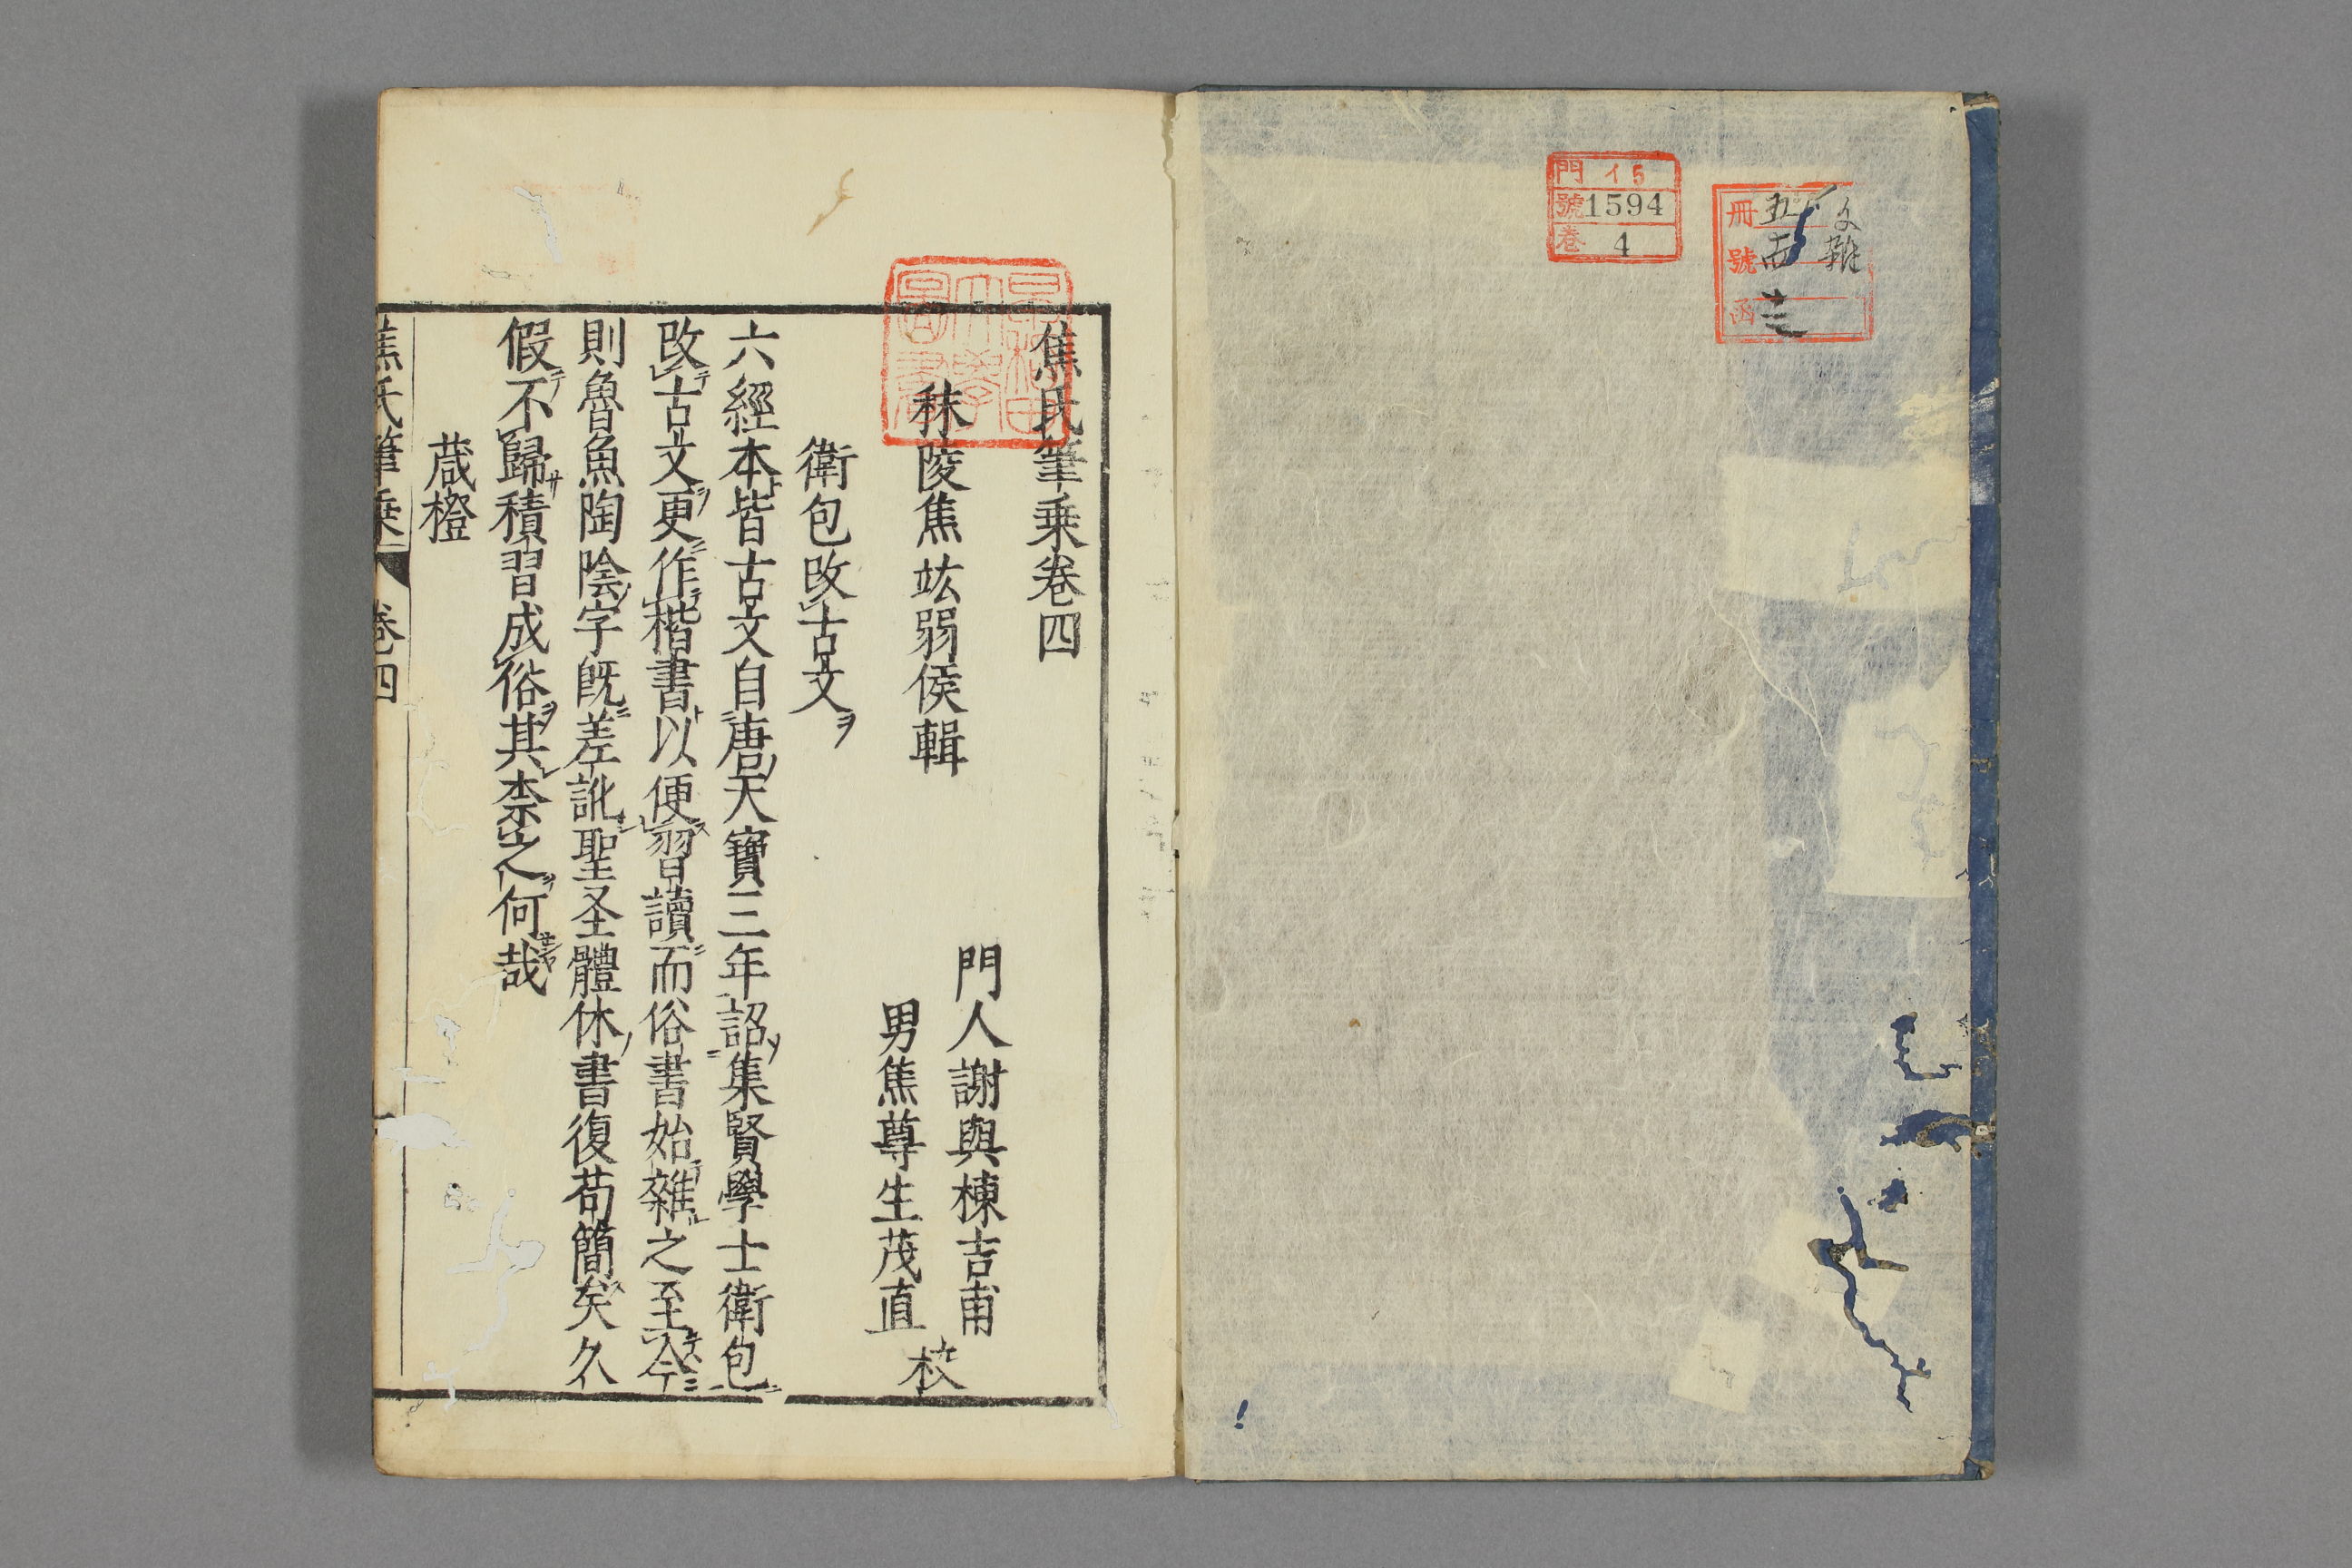 門 イ5
號 1594
巻 4
文雜
冊 五
號
函
焦氏筆乗巻四
秣陵焦竑弱侯輯
門人謝與棟吉甫
男焦尊生茂直
校
衛包改古文ヲ
六經本皆古文自唐天寶三年詔集賢學士衛包
改古文更作楷書以便習讀而俗書始雜之至今
則魯魚陶陰字既差訛聖圣體休書復茍簡矣久
假不歸積習成俗其柰之何哉
蔵橙
焦氏筆乗 巻四
早稲田大學圖書